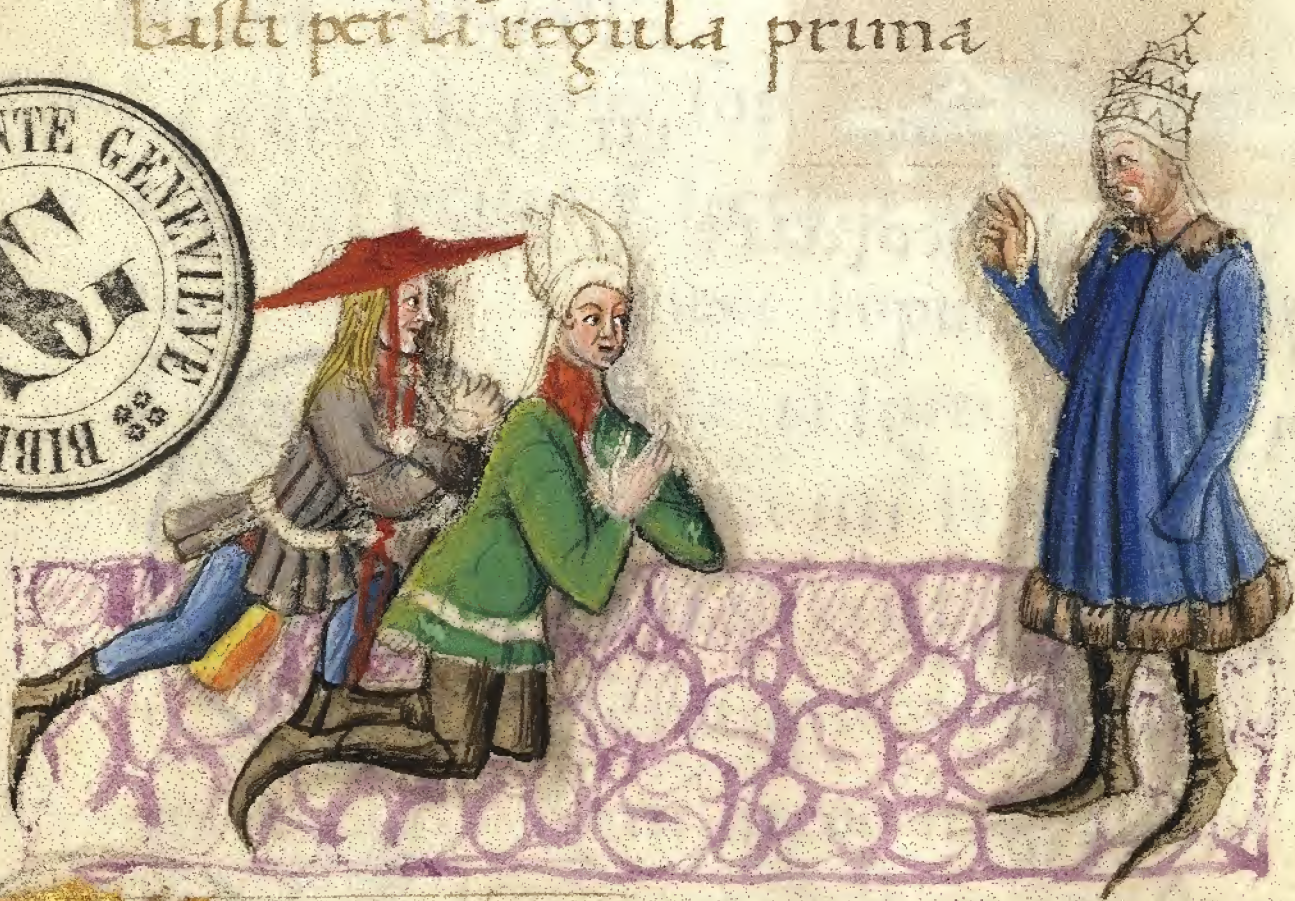 basti per la regula prima
NTE GENEVIEVE
BIB
SG